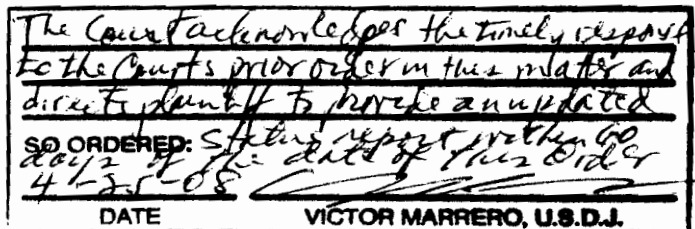 The Court acknowledges the timely response
to the Court's prior order in this matter and
directs plaintiff to provide an updated
SO ORDERED: status report within 60
days of the date of this Order
4-25-08
DATE VICTOR MARRERO, U.S.D.J.